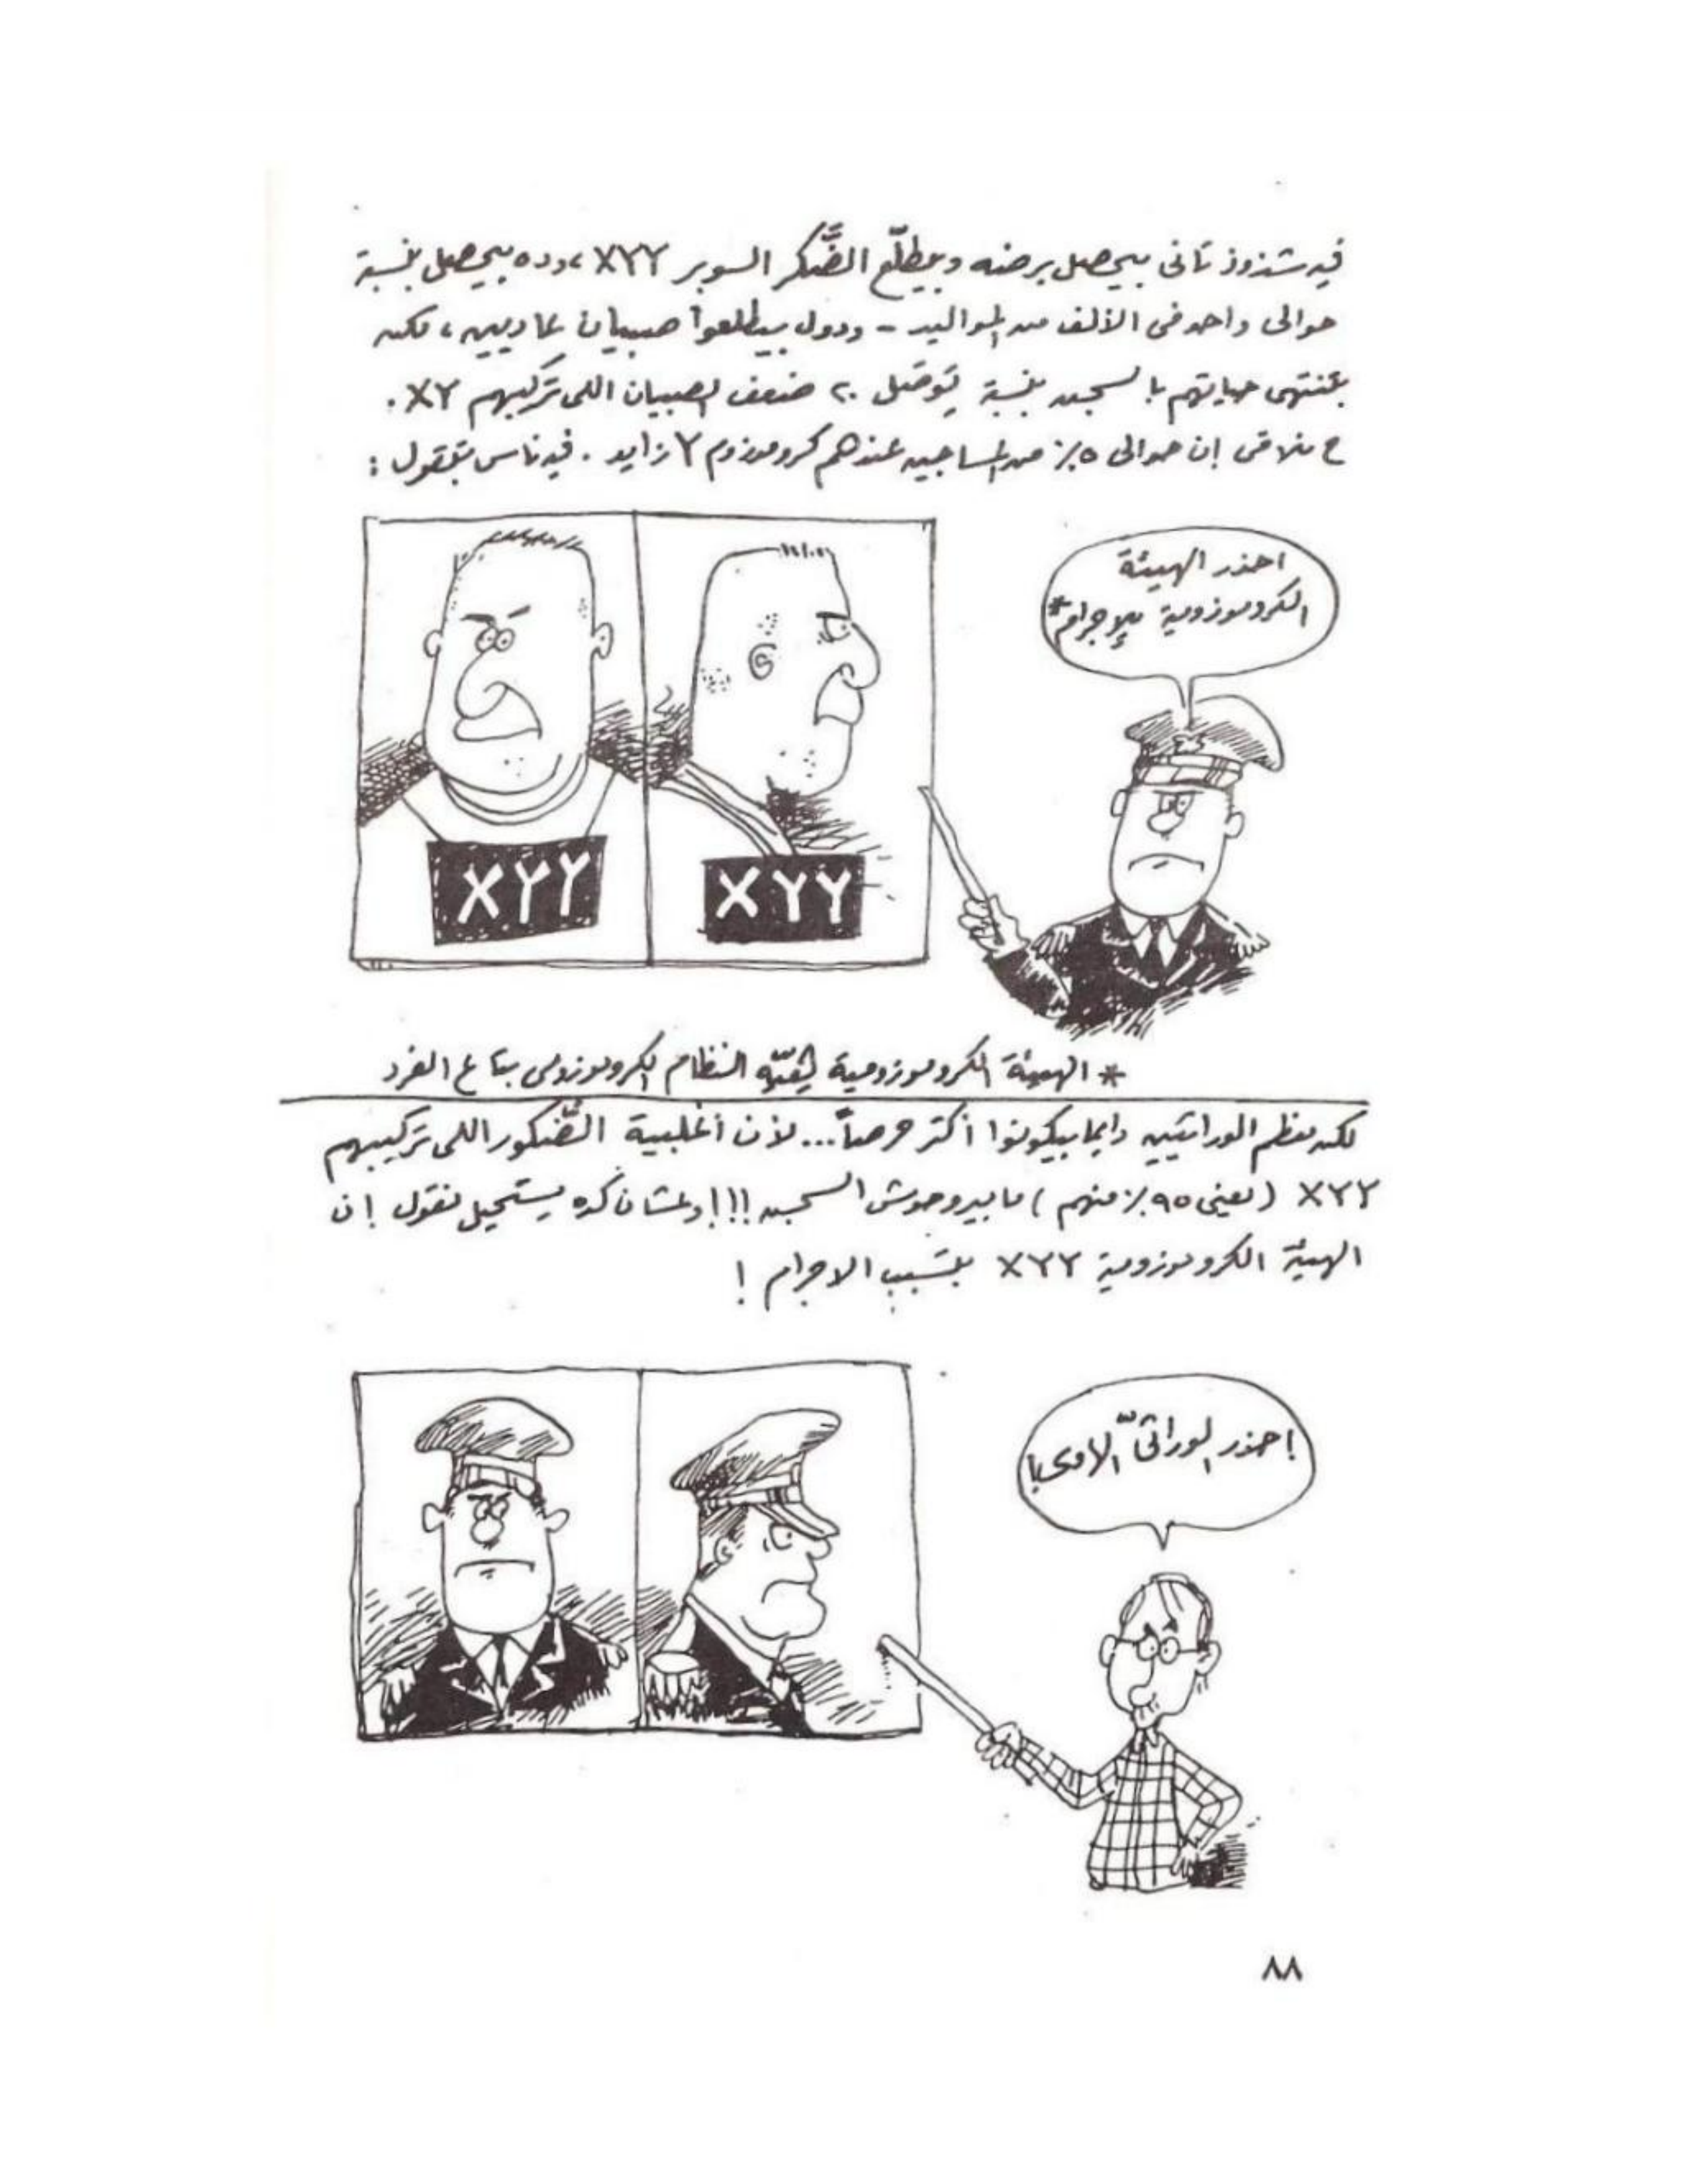 فيه شذوذ تانى بيحصل برضه وبيطلّع الضَّكر السوبر XYY، وده بيحصل بنسبة
حوالى واحد فى الألف من المواليد - ودول بيطلعوا صبيان عاديين، لكن
بتنتهى حياتهم بالسجن بنسبة توصَل ٢٠ ضعف الصبيان اللى تركيبهم XY.
ح نلاقى إن حوالى ٥٪ من المساجين عندهم كروموزوم Y زايد. فيه ناس بتقول:
احذر الهيئة
الكروموزومية للإجرام*
XYY
XYY
* الهيئة الكروموزومية يَعنى النظام الكروموزومى بتاع الفرد
لكن معظم الوراثيين دايما بيكونوا أكتر حرصاً... لأن أغلبية الضَّكور اللى تركيبهم
XYY (يعنى ٩٥٪ منهم) ما بيروحوش السجن!!! وعشان كده يستحيل نقول إن
الهيئة الكروموزومية XYY بتسبب الاجرام!
احذر الوراثىّ
٨٨